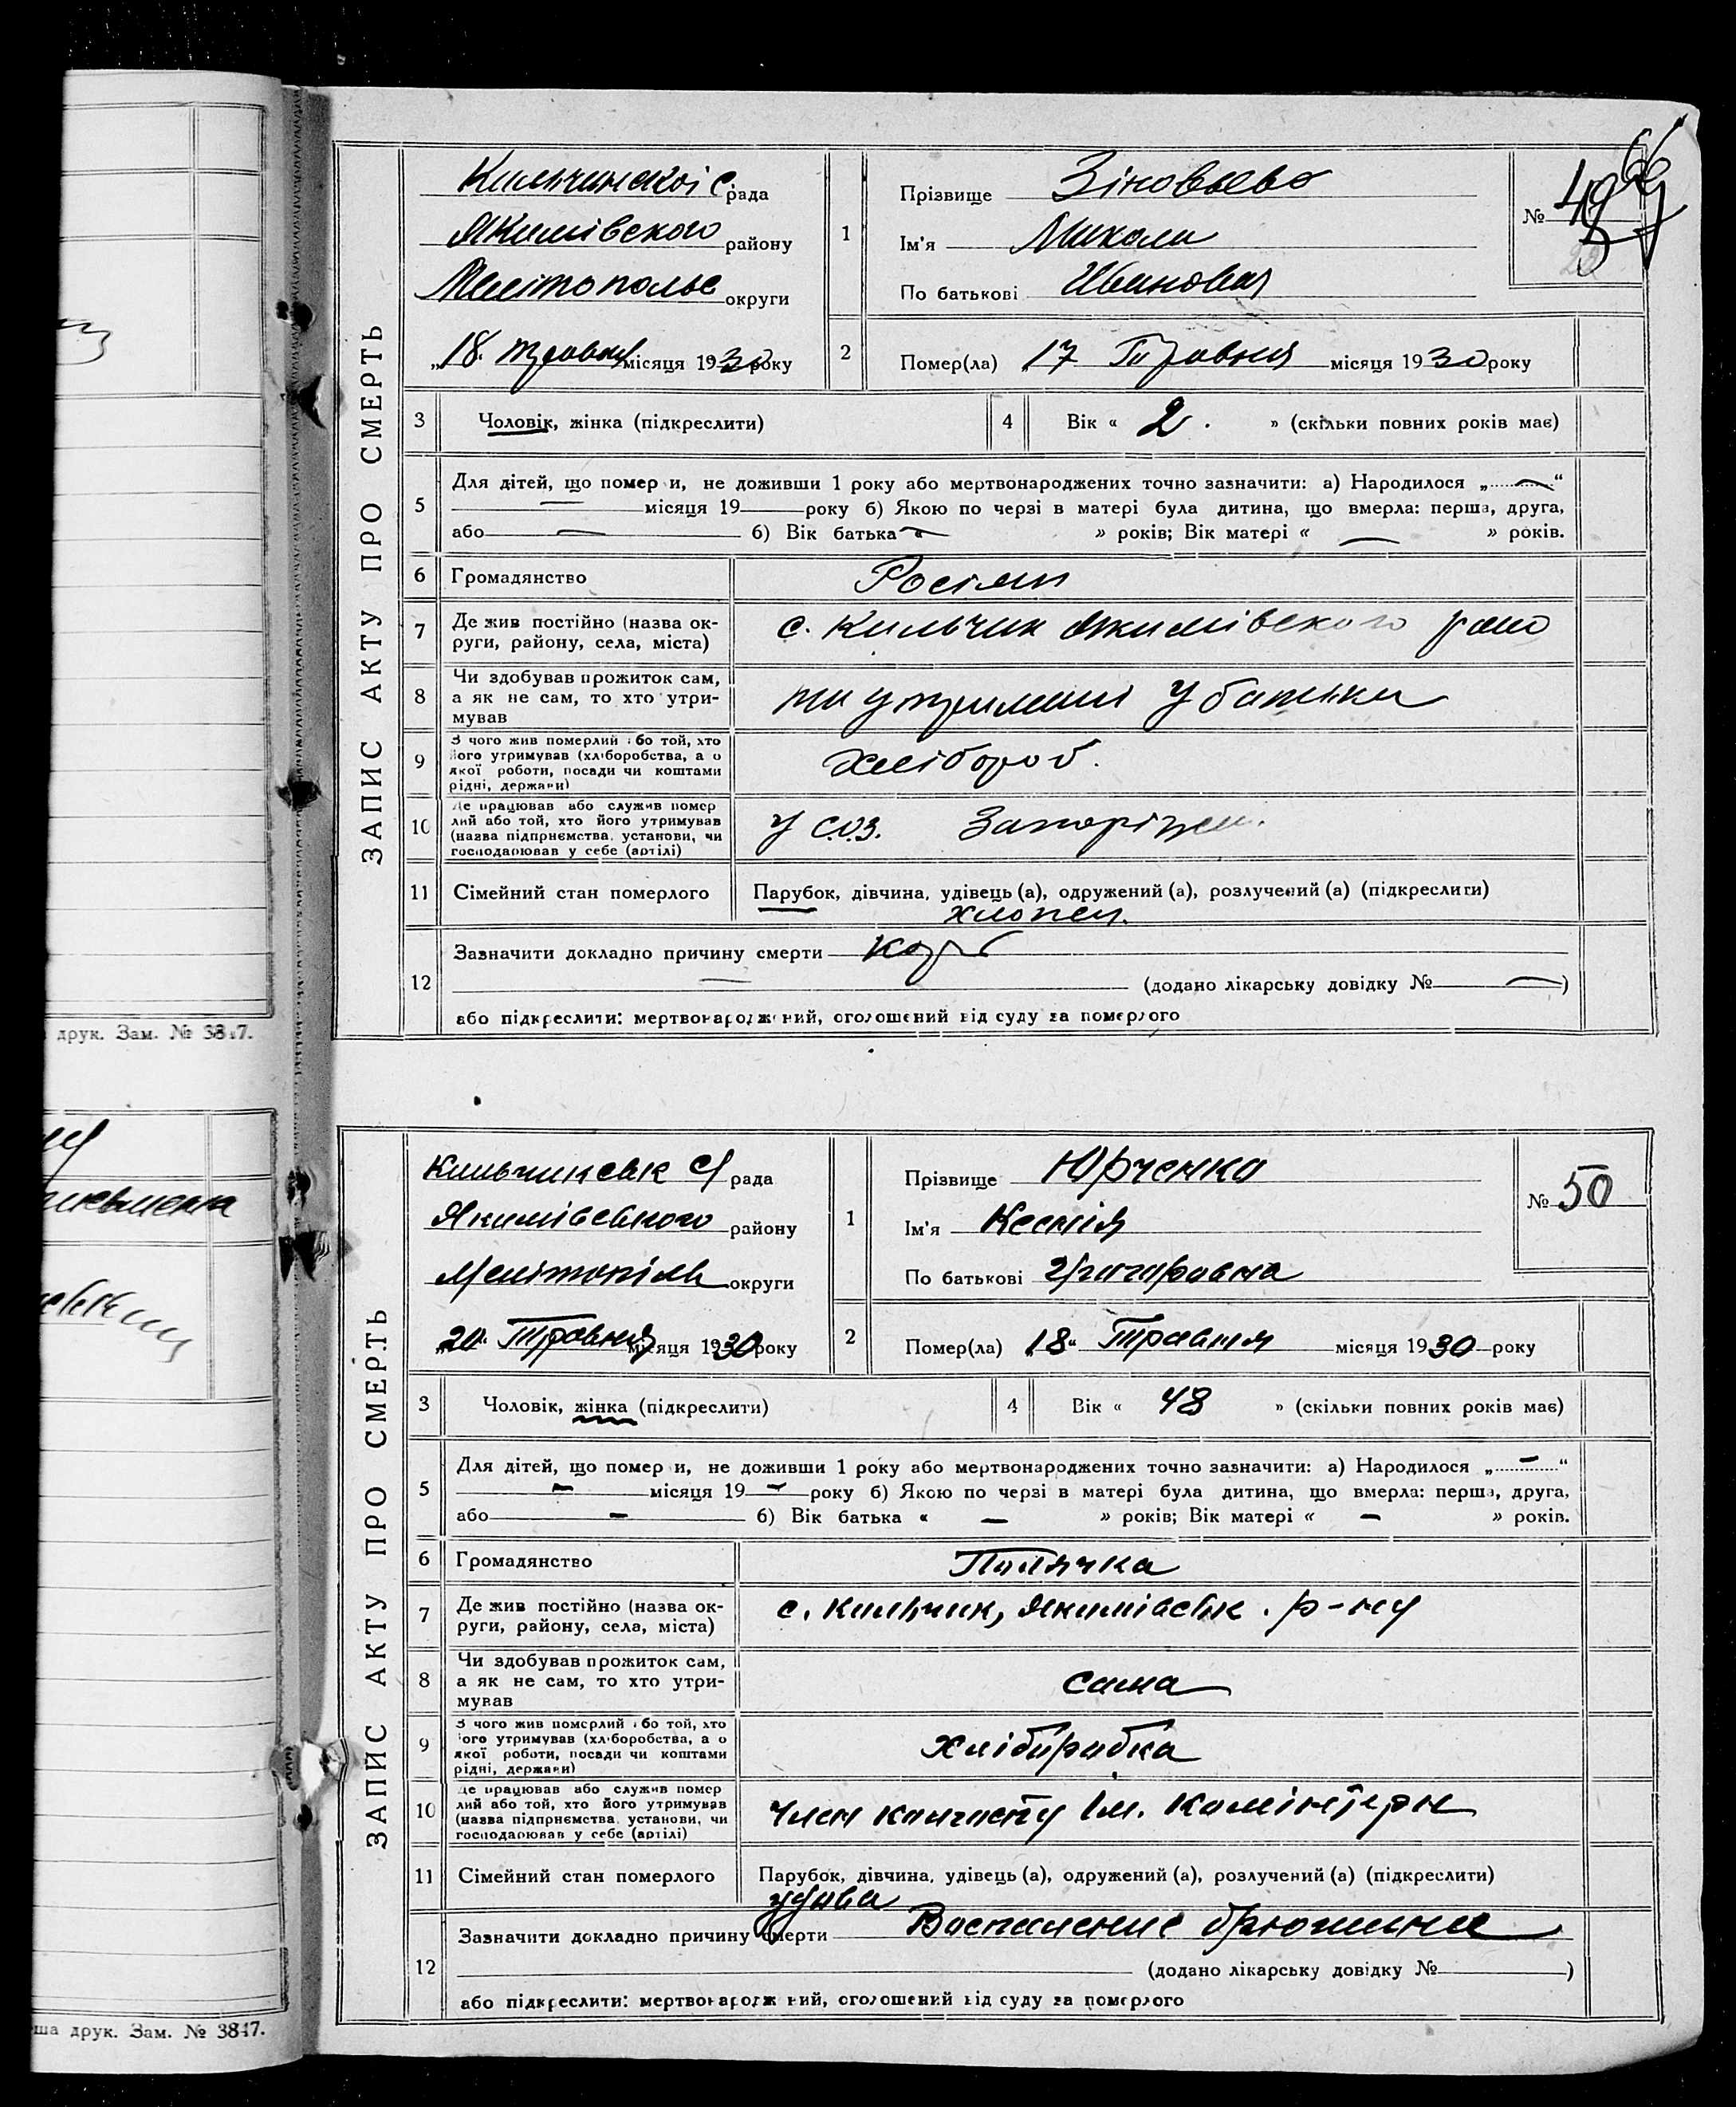 друк. Зам. № 3817.
ша друк. Зам. № 3847.
ЗАПИС АКТУ ПРО СМЕРТЬ
Кильчинскої с. рада
Якимівского району
округи
„18" травня місяця 1930 року
1
Прізвище Зіновьево
Ім'я Миколи
По батькові Ивановая
№ 49
66
2
Помер(ла) „17 Травня місяця 1930 року
3
Чоловік, жінка (підкреслити)
4
Вік « 2. » (скільки повних років має)
5
Для дітей, що помер и, не доживши 1 року або мертвонароджених точно зазначити: а) Народилося „ — “
— місяця 19 року б) Якою по черзі в матері була дитина, що вмерла: перша, друга,
або — б) Вік батька « — » років; Вік матері « — » років.
6
Громадянство
Росіян
7
Де жив постійно (назва ок-
руги, району, села, міста)
с. Кильчик Якимівского
8
Чи здобував прожиток сам,
а як не сам, то хто утри-
мував
на утримані у батька
9
З чого жив померлий або той, хто
його утримував (хліборобства, а о
якої роботи, посади чи коштами
рідні, держави)
Хлібороб.
10
Де працював або служив помер
лий або той, хто його утримував
(назва підприємства, установи, чи
господарював у себе (артілі)
у СОЗ.
11
Сімейний стан померлого
Парубок, дівчина, удівець (а), одружений (а), розлучений (а) (підкреслити)
хлопец.
12
Зазначити докладно причину смерти — Кор
— (додано лікарську довідку № — )
або підкреслити: мертвонароджений, оголошений від суду за померлого
ЗАПИС АКТУ ПРО СМЕРТЬ
рада
Якимівського району
Мелітопіль округи
„20" Травня місяця 1930 року
1
Прізвище Юрченко
Ім'я Ксенія
По батькові Григоравна
№ 50
2
Помер(ла) „18" Травня місяця 1930 року
3
Чоловік, жінка (підкреслити)
4
Вік « 48 » (скільки повних років має)
5
Для дітей, що помер и, не доживши 1 року або мертвонароджених точно зазначити: а) Народилося „ — “
— місяця 19 — року б) Якою по черзі в матері була дитина, що вмерла: перша, друга,
або — б) Вік батька « — » років; Вік матері « — » років.
6
Громадянство
Полячка
7
Де жив постійно (назва ок-
руги, району, села, міста)
с. Кильчик, Якимівськ. р-ну
8
Чи здобував прожиток сам,
а як не сам, то хто утри-
мував
сама
9
З чого жив померлий або той, хто
його утримував (хліборобства, а о
якої роботи, посади чи коштами
рідні, держави)
хліборобка
10
Де працював або служив помер
лий або той, хто його утримував
(назва підприємства, установи, чи
господарював у себе (артілі)
член колгоспу ім. Комінтерн
11
Сімейний стан померлого
Парубок, дівчина, удівець (а), одружений (а), розлучений (а) (підкреслити)
удова
12
Зазначити докладно причину смерти Воспаление брюшины
(додано лікарську довідку № )
або підкреслити: мертвонародж ний, оголошений від суду за померлого